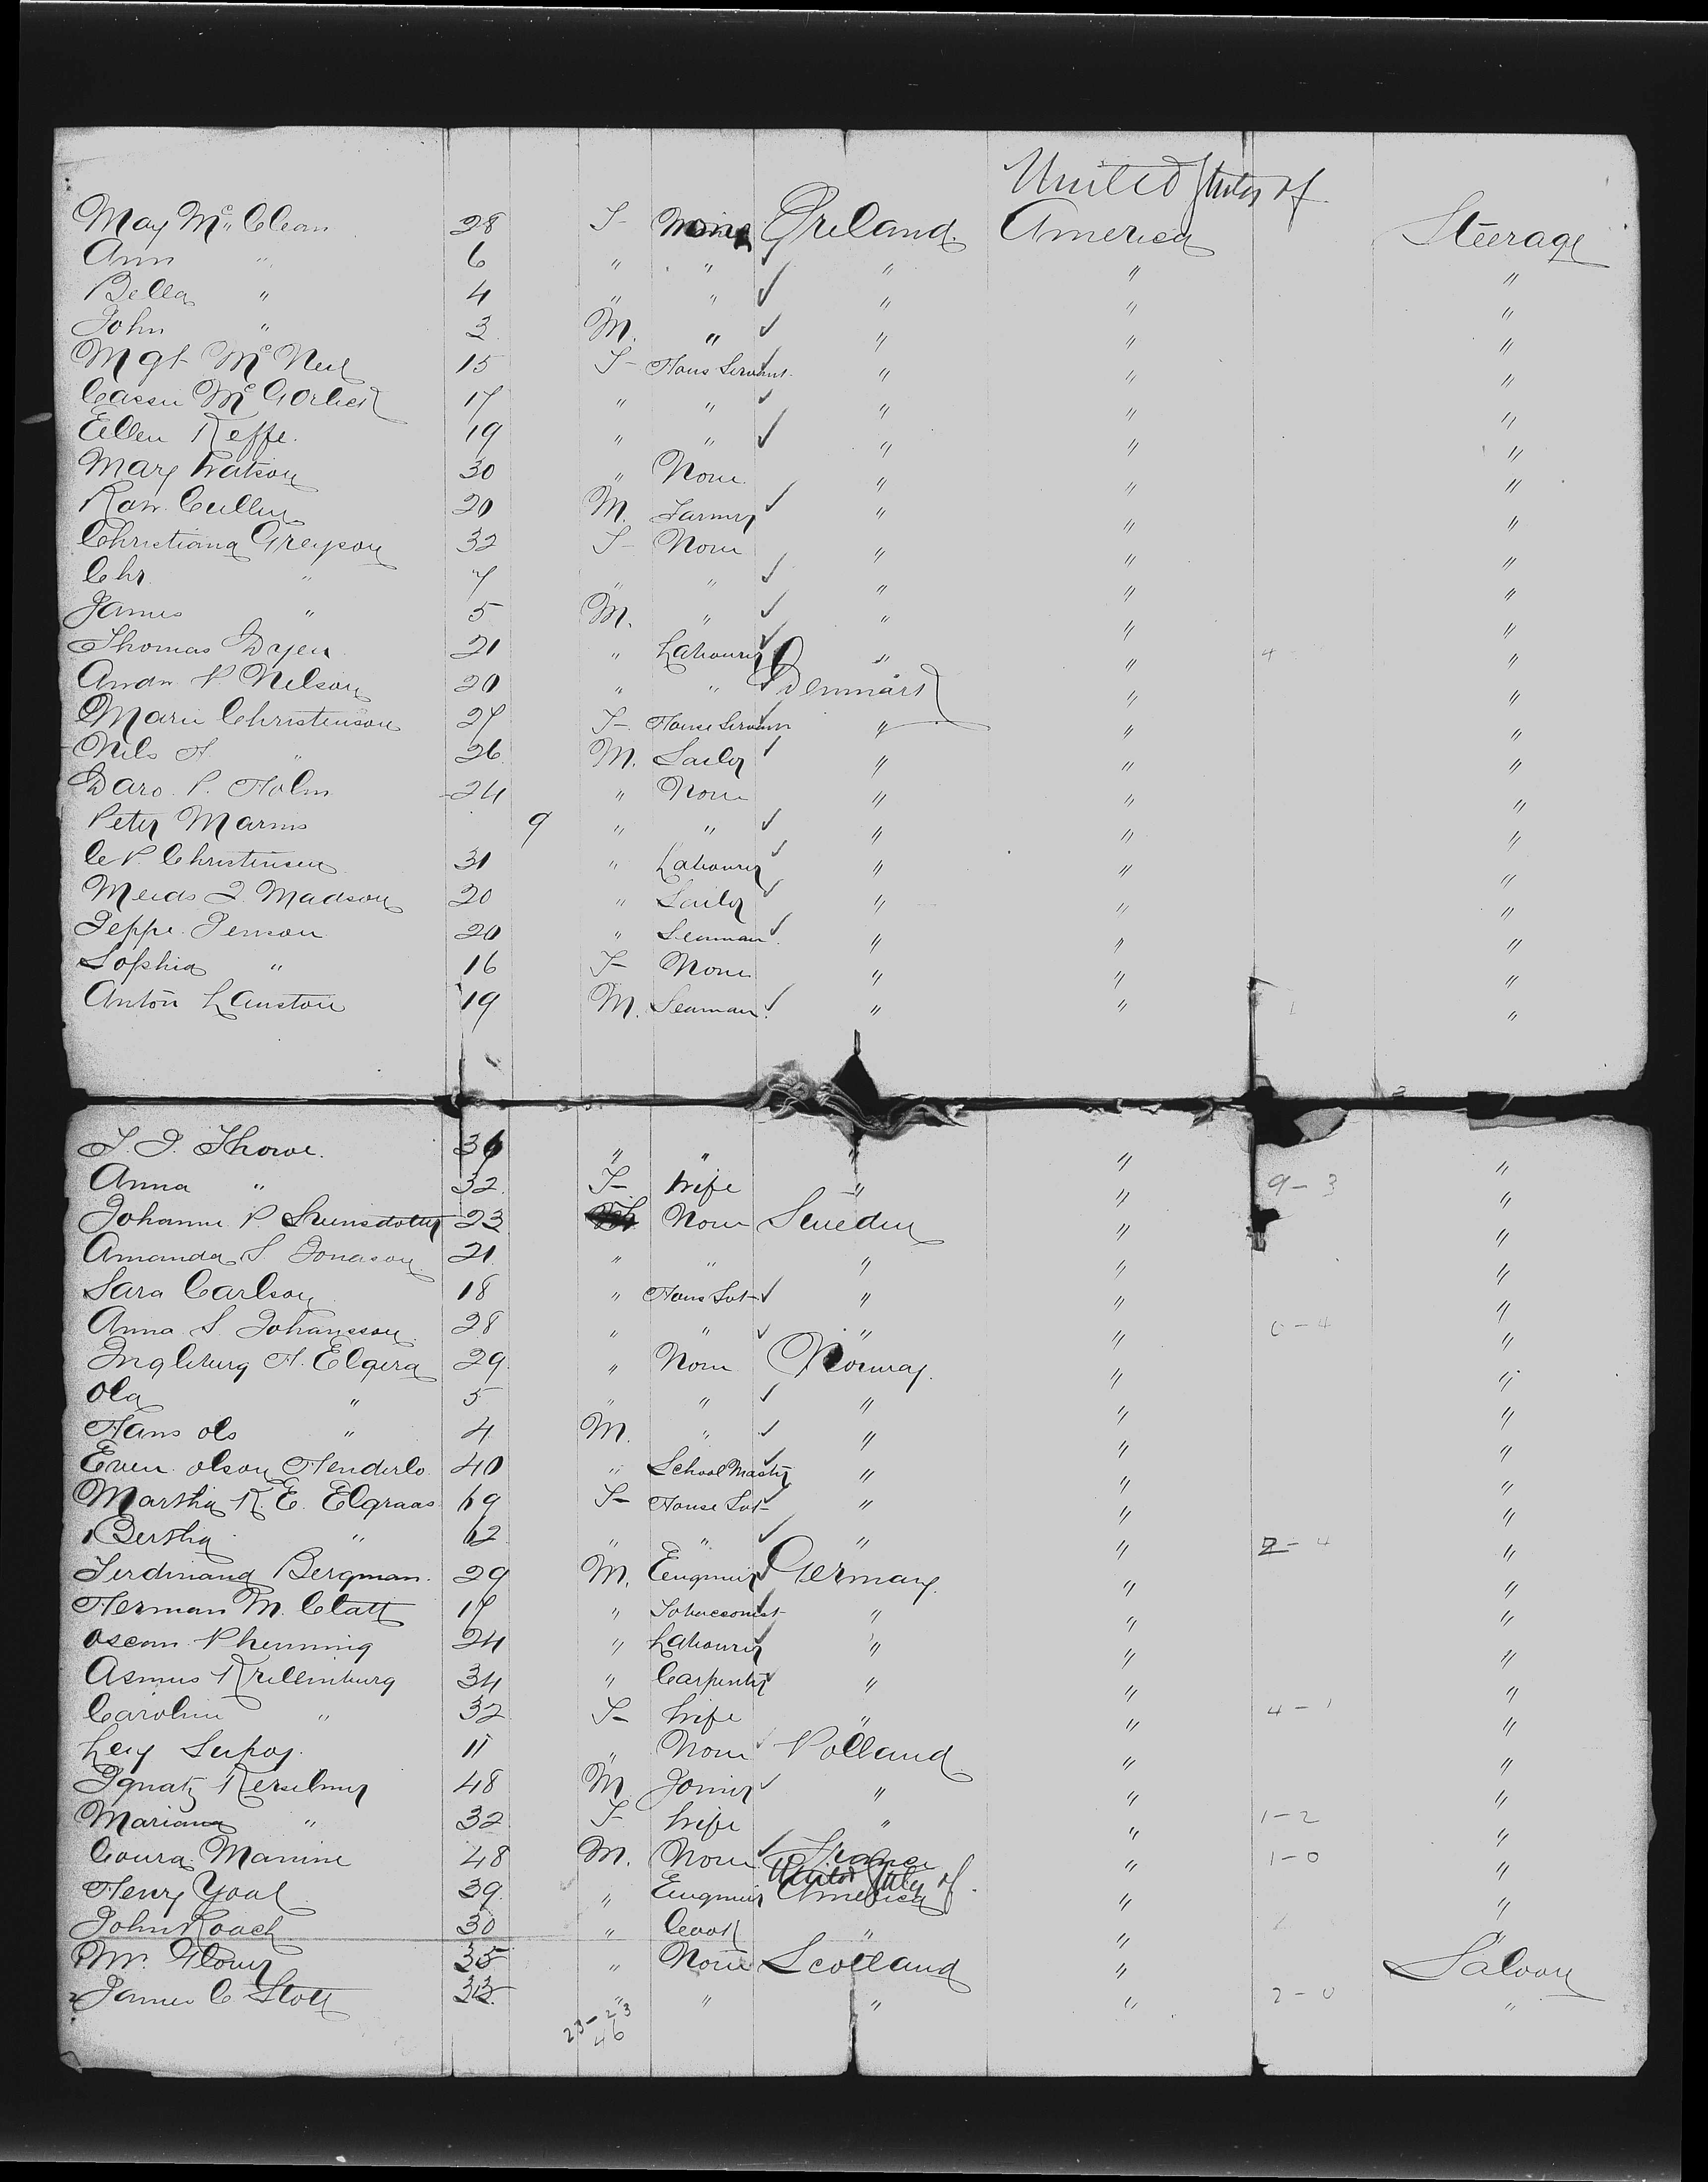 United States of
May Mc Clean 28 F None Ireland America Steerage
Ann " 6 " " " " "
Bella " 4 " " " " "
John " 3 M. " " " "
Mgt Mc Neil 15 F Hous Servant " " "
Cassie Mc 17 " " " " "
Ellen Keffe. 19 " " " " "
Mary Watson 30 " None " " "
Cullen 20 M. Farmer " " "
Christiana Greyson 32 F None " " "
Chr. " 7 " " " " "
James " 5 M. " " " "
Thomas Dyer 21 " Labourer " " 4 "
Andw P. Nelson 20 " " Denmark " "
Marie Christenson 27 F House Servant " " "
Nils H " 26 M. Sailor " " "
P. Holm 24 " None " " "
Peter Marms 9 " " " " "
C P. Christensen 31 " Labourer " " "
J. Madson 20 " Sailor " " "
Jeppe Jenson 20 " Seaman " " "
Sophia " 16 F None " " "
Anton 19 M. Seaman " " "
Thowe. 36 " " " " "
Anna " 32 F Wife " " 9-3 "
Johanne P. Svensdotter 23 None Sweden " "
Amanda S. Jonason 21 " " " " "
Sara Carlson 18 " Hous Svt " " "
Anna S. Johansson 28 " " " " "
H. Elgera 29 " None Norway. " "
Ola " 5 " " " " "
Hans Ols " 4 M. " " " "
Even Olson Henderlo 40 " School Master " " "
Martha K. E. Elgraas 69 F House Svt " " "
Bertha " 62 " " " " 2-4 "
Ferdinand Bergman. 29 M. Engineer Germany. " "
Herman M. Clatt 17 " Tobacconist " " "
24 " Labourer " " "
Asmus 34 " Carpenter " " "
Caroline " 32 F Wife " " "
11 " None Polland " "
Ignatz 48 M Joiner " " "
Mariana " 32 F Wife " " 1-2 "
Manine 48 M. None France " 1-0 "
United States of
Henry Yoal 39 " Engineer America " "
John Roach 30 " Cook " " "
Mr. 35 " None Scotland " Saloon
James C. Stott 33 " " " " 2-0 "
23-23
46